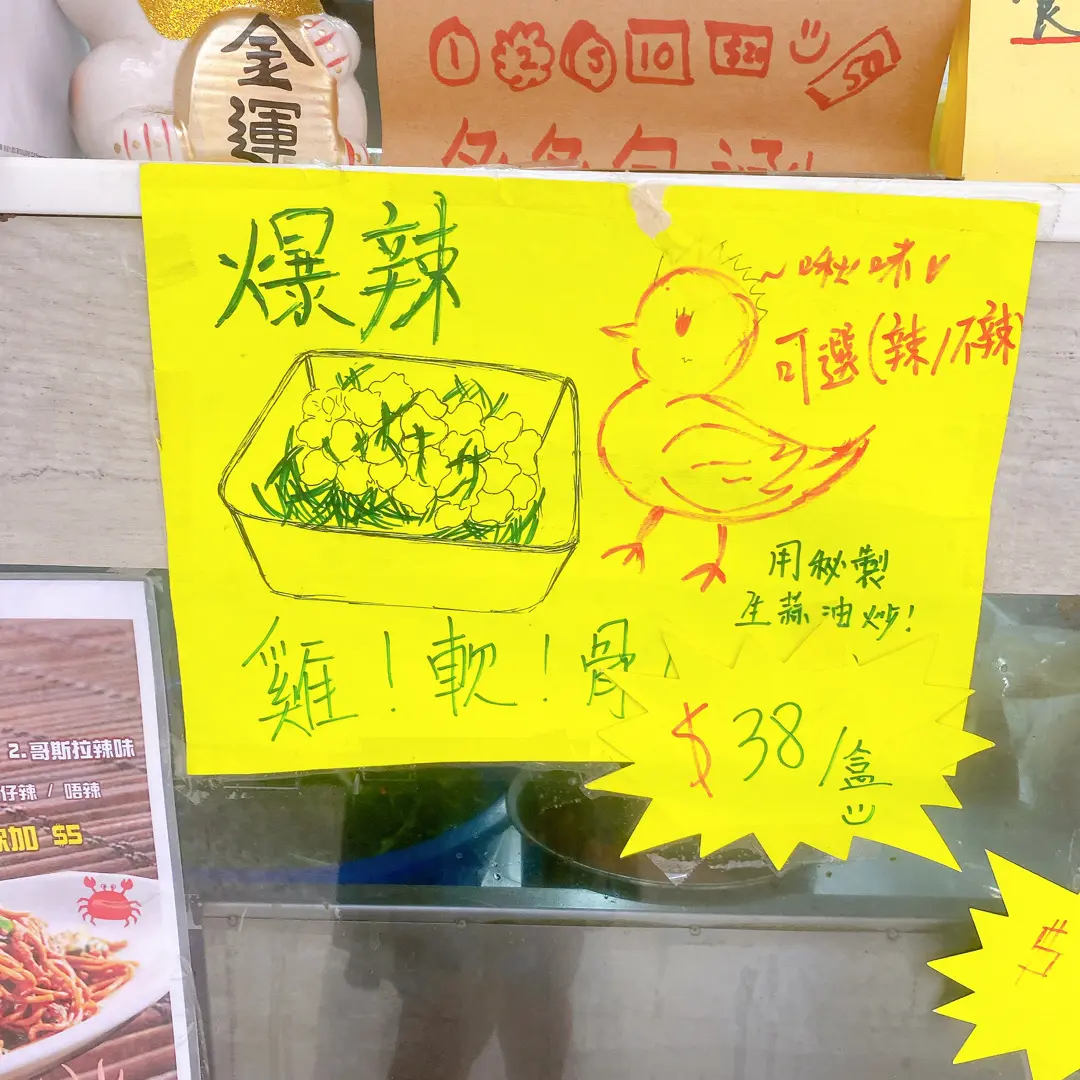 金
運
1 2 5 10 $20 50
爆辣
~啾味
可選(辣/不辣)
用秘製
生蒜油炒!
雞!軟!骨!
$38/盒
2.哥斯拉辣味
仔辣 / 唔辣
加 $5
$